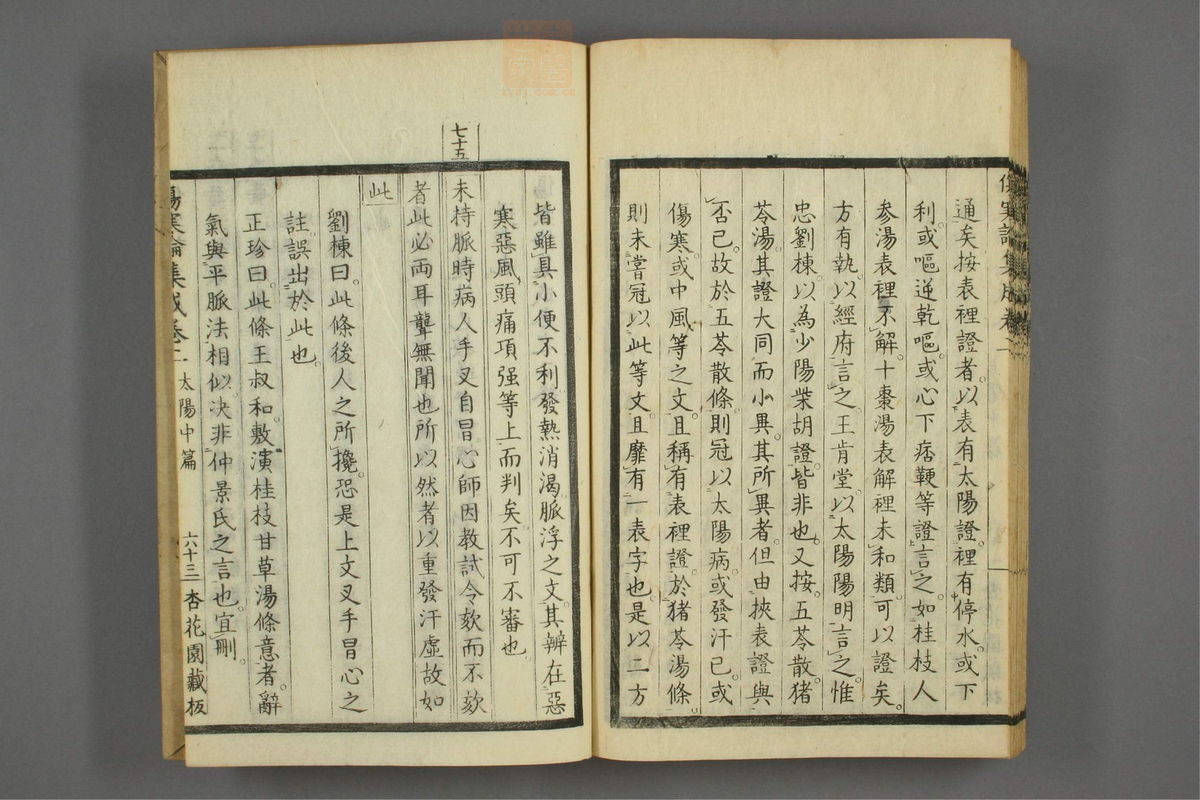 通矣按表裡證者以表有太陽證裡有停水或下
利或嘔逆乾嘔或心下痞鞕等證言之如桂枝人
参湯表裡不解十棗湯表解裡未和類可以證矣
方有執以經府言之王肯堂以太陽陽明言之惟
忠劉棟以為少陽柴胡證皆非也又按五苓散豬
苓湯其證大同而小異其所異者但由挾表證與
否已故於五苓散條則冠以太陽病或發汗已或
傷寒或中風等之文且稱有表裡證於猪苓湯條
則未嘗冠以此等文且靡有一表字也是以二方
皆雖具小便不利發熱消渴脈浮之文其辨在惡
寒惡風頭痛項强等上而判矣不可不審也
七十五
未持脈時病人手叉自冒心師因教試令欬而不欬
者此必両耳聾無聞也所以然者以重發汗虛故如
此
劉棟曰此條後人之所攙恐是上文叉手冒心之
註誤出於此也
正珍曰此條王叔和敷演桂枝甘草湯條意者辭
氣與平脈法相似决非仲景氏之言也宜刪
傷寒論集成卷二 太陽中篇 六十三 杏花園藏板